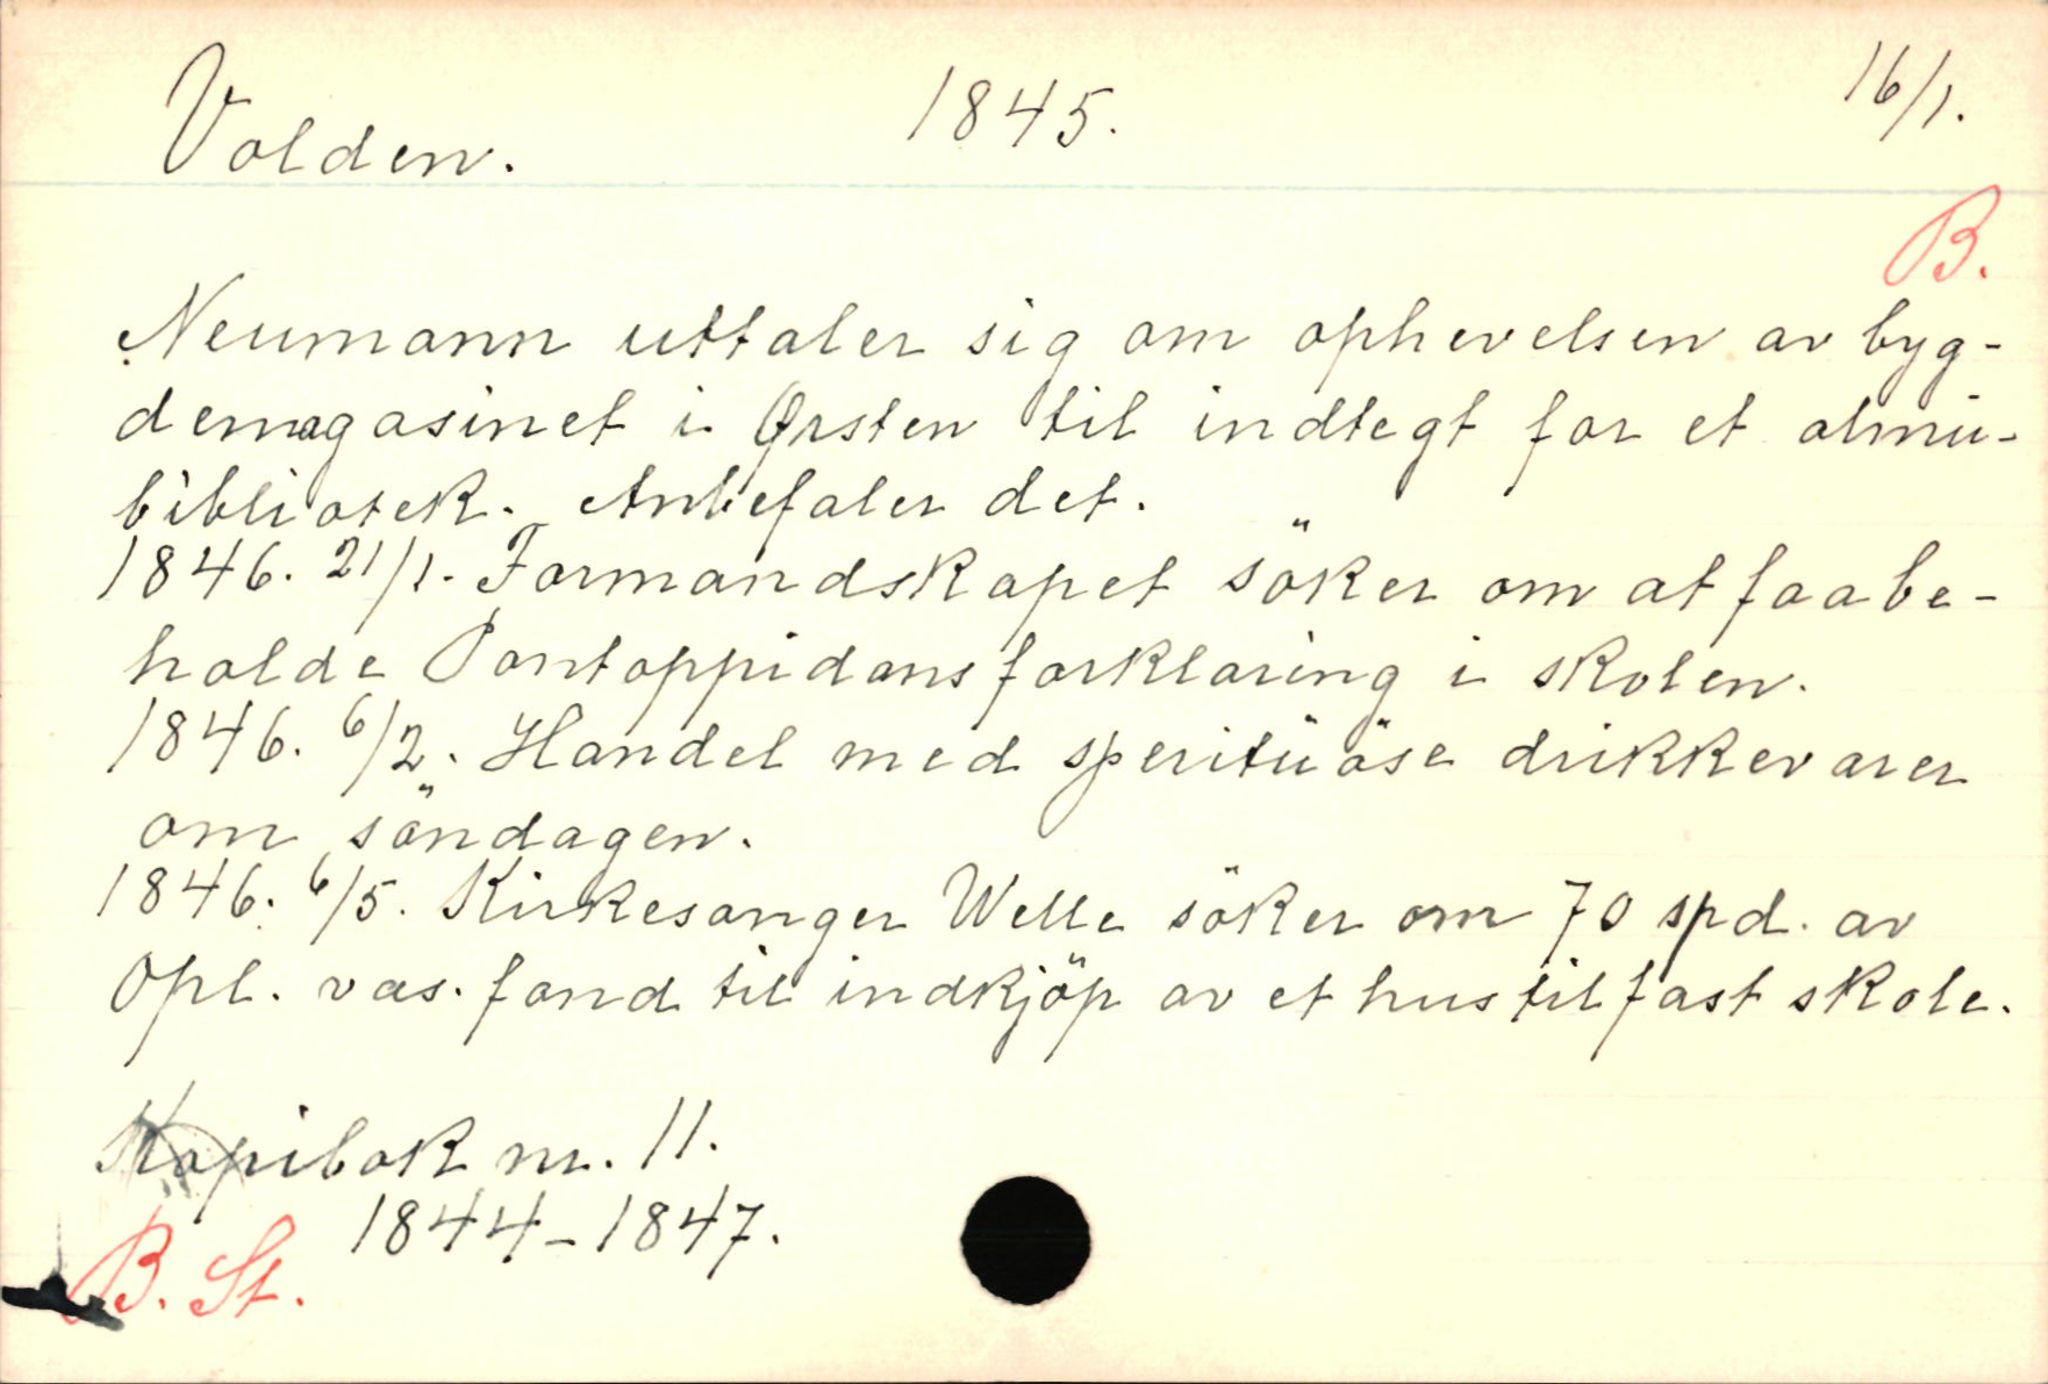 Volden. 1845. 16/1.
B.
Neumann uttaler sig om ophevelsen av byg-
demagasinet i Ørsten til indtegt for et almu-
bibliotek. Anbefaler det.
1846. 21/1. Formandskapet söker om at faa be-
holde Pontoppidans forklaring i skolen.
1846. 6/2. Handel med sperituöse drikkevarer
om söndagen.
1846. 6/5. Kirkesanger Welle söker om 70 spd. av
Opl. væs. fond til indkjöp av et hus til fast skole.
Kopibok nr. 11.
1844-1847.
B. St.